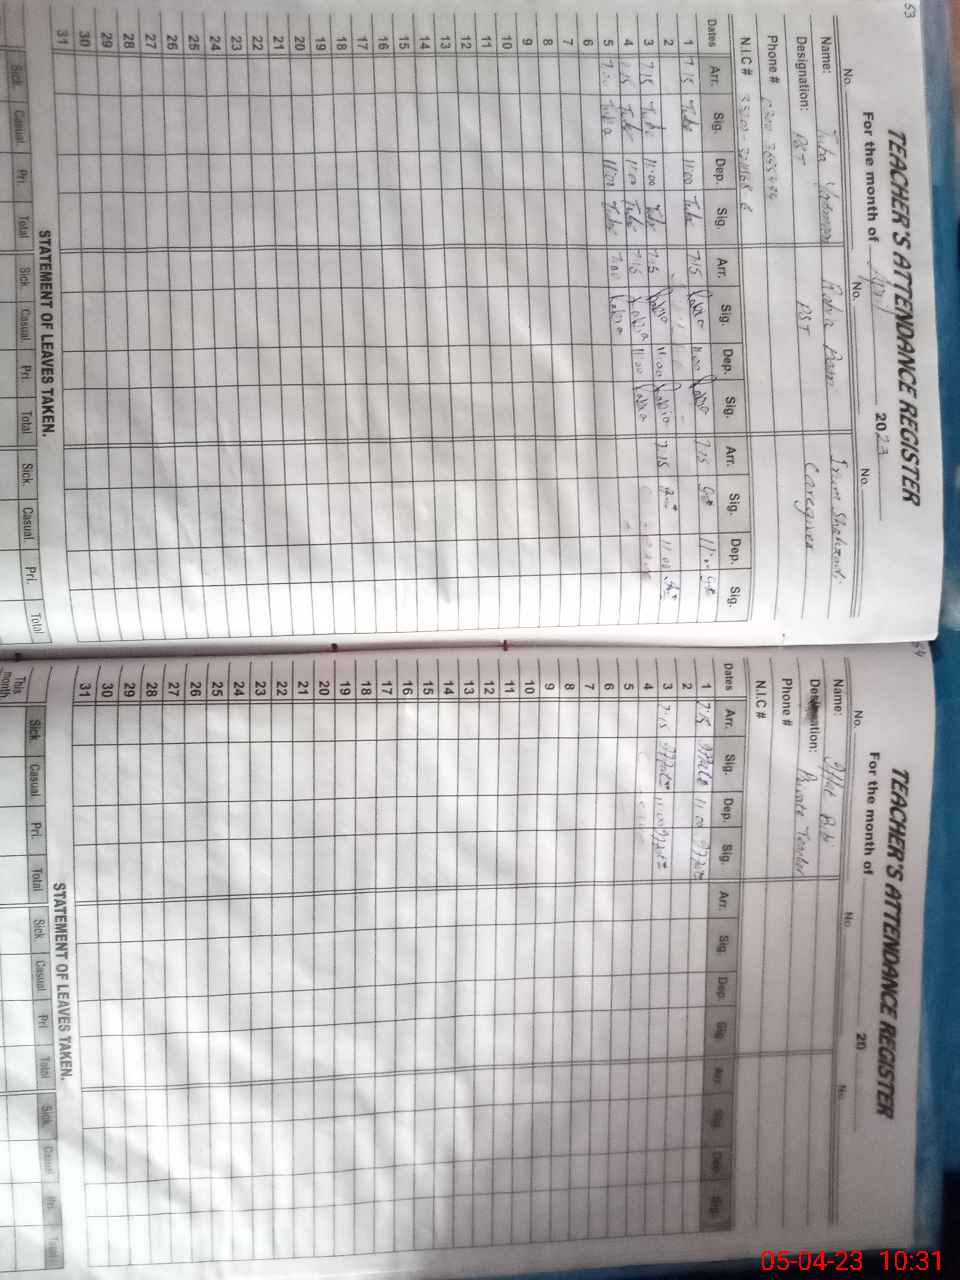 53
TEACHER'S ATTENDANCE REGISTER
For the month of April 2023
No. No. No.
Name: Rabia
Designation: PST PST Caregiver
Phone #
N.I.C #
Dates Arr. Sig. Dep. Sig. Arr. Sig. Dep. Sig. Arr. Sig. Dep. Sig.
1 7:15 Tuba 11:00 Tuba 7:15 Rabia 11:00 Rabia 7:15
2
3 7:15 Tuba 11:00 Tuba 7:15 Rabia 11:00 Rabia 7:15 11:00
4 7:15 Tuba 11:00 Tuba 7:15 Rabia 11:00 Rabia
5 7:00 Tuba 11:00 Tuba 7:00 Rabia
6
7
8
9
10
11
12
13
14
15
16
17
18
19
20
21
22
23
24
25
26
27
28
29
30
31
STATEMENT OF LEAVES TAKEN.
Sick. Casual. Pri. Total Sick. Casual. Pri. Total Sick. Casual. Pri. Total
54
TEACHER'S ATTENDANCE REGISTER
For the month of 20
No. No. No.
Name: Iffat Bibi
Designation: Private Teacher
Phone #
N.I.C #
Dates Arr. Sig. Dep. Sig. Arr. Sig. Dep. Sig. Arr. Sig. Dep. Sig.
1 7:15 Iffat 11:00 Iffat
2
3 7:15 Iffat 11:00 Iffat
4
5
6
7
8
9
10
11
12
13
14
15
16
17
18
19
20
21
22
23
24
25
26
27
28
29
30
31
STATEMENT OF LEAVES TAKEN.
Sick. Casual. Pri. Total Sick. Casual. Pri. Total Sick. Casual. Pri. Total
This month
05-04-23 10:31